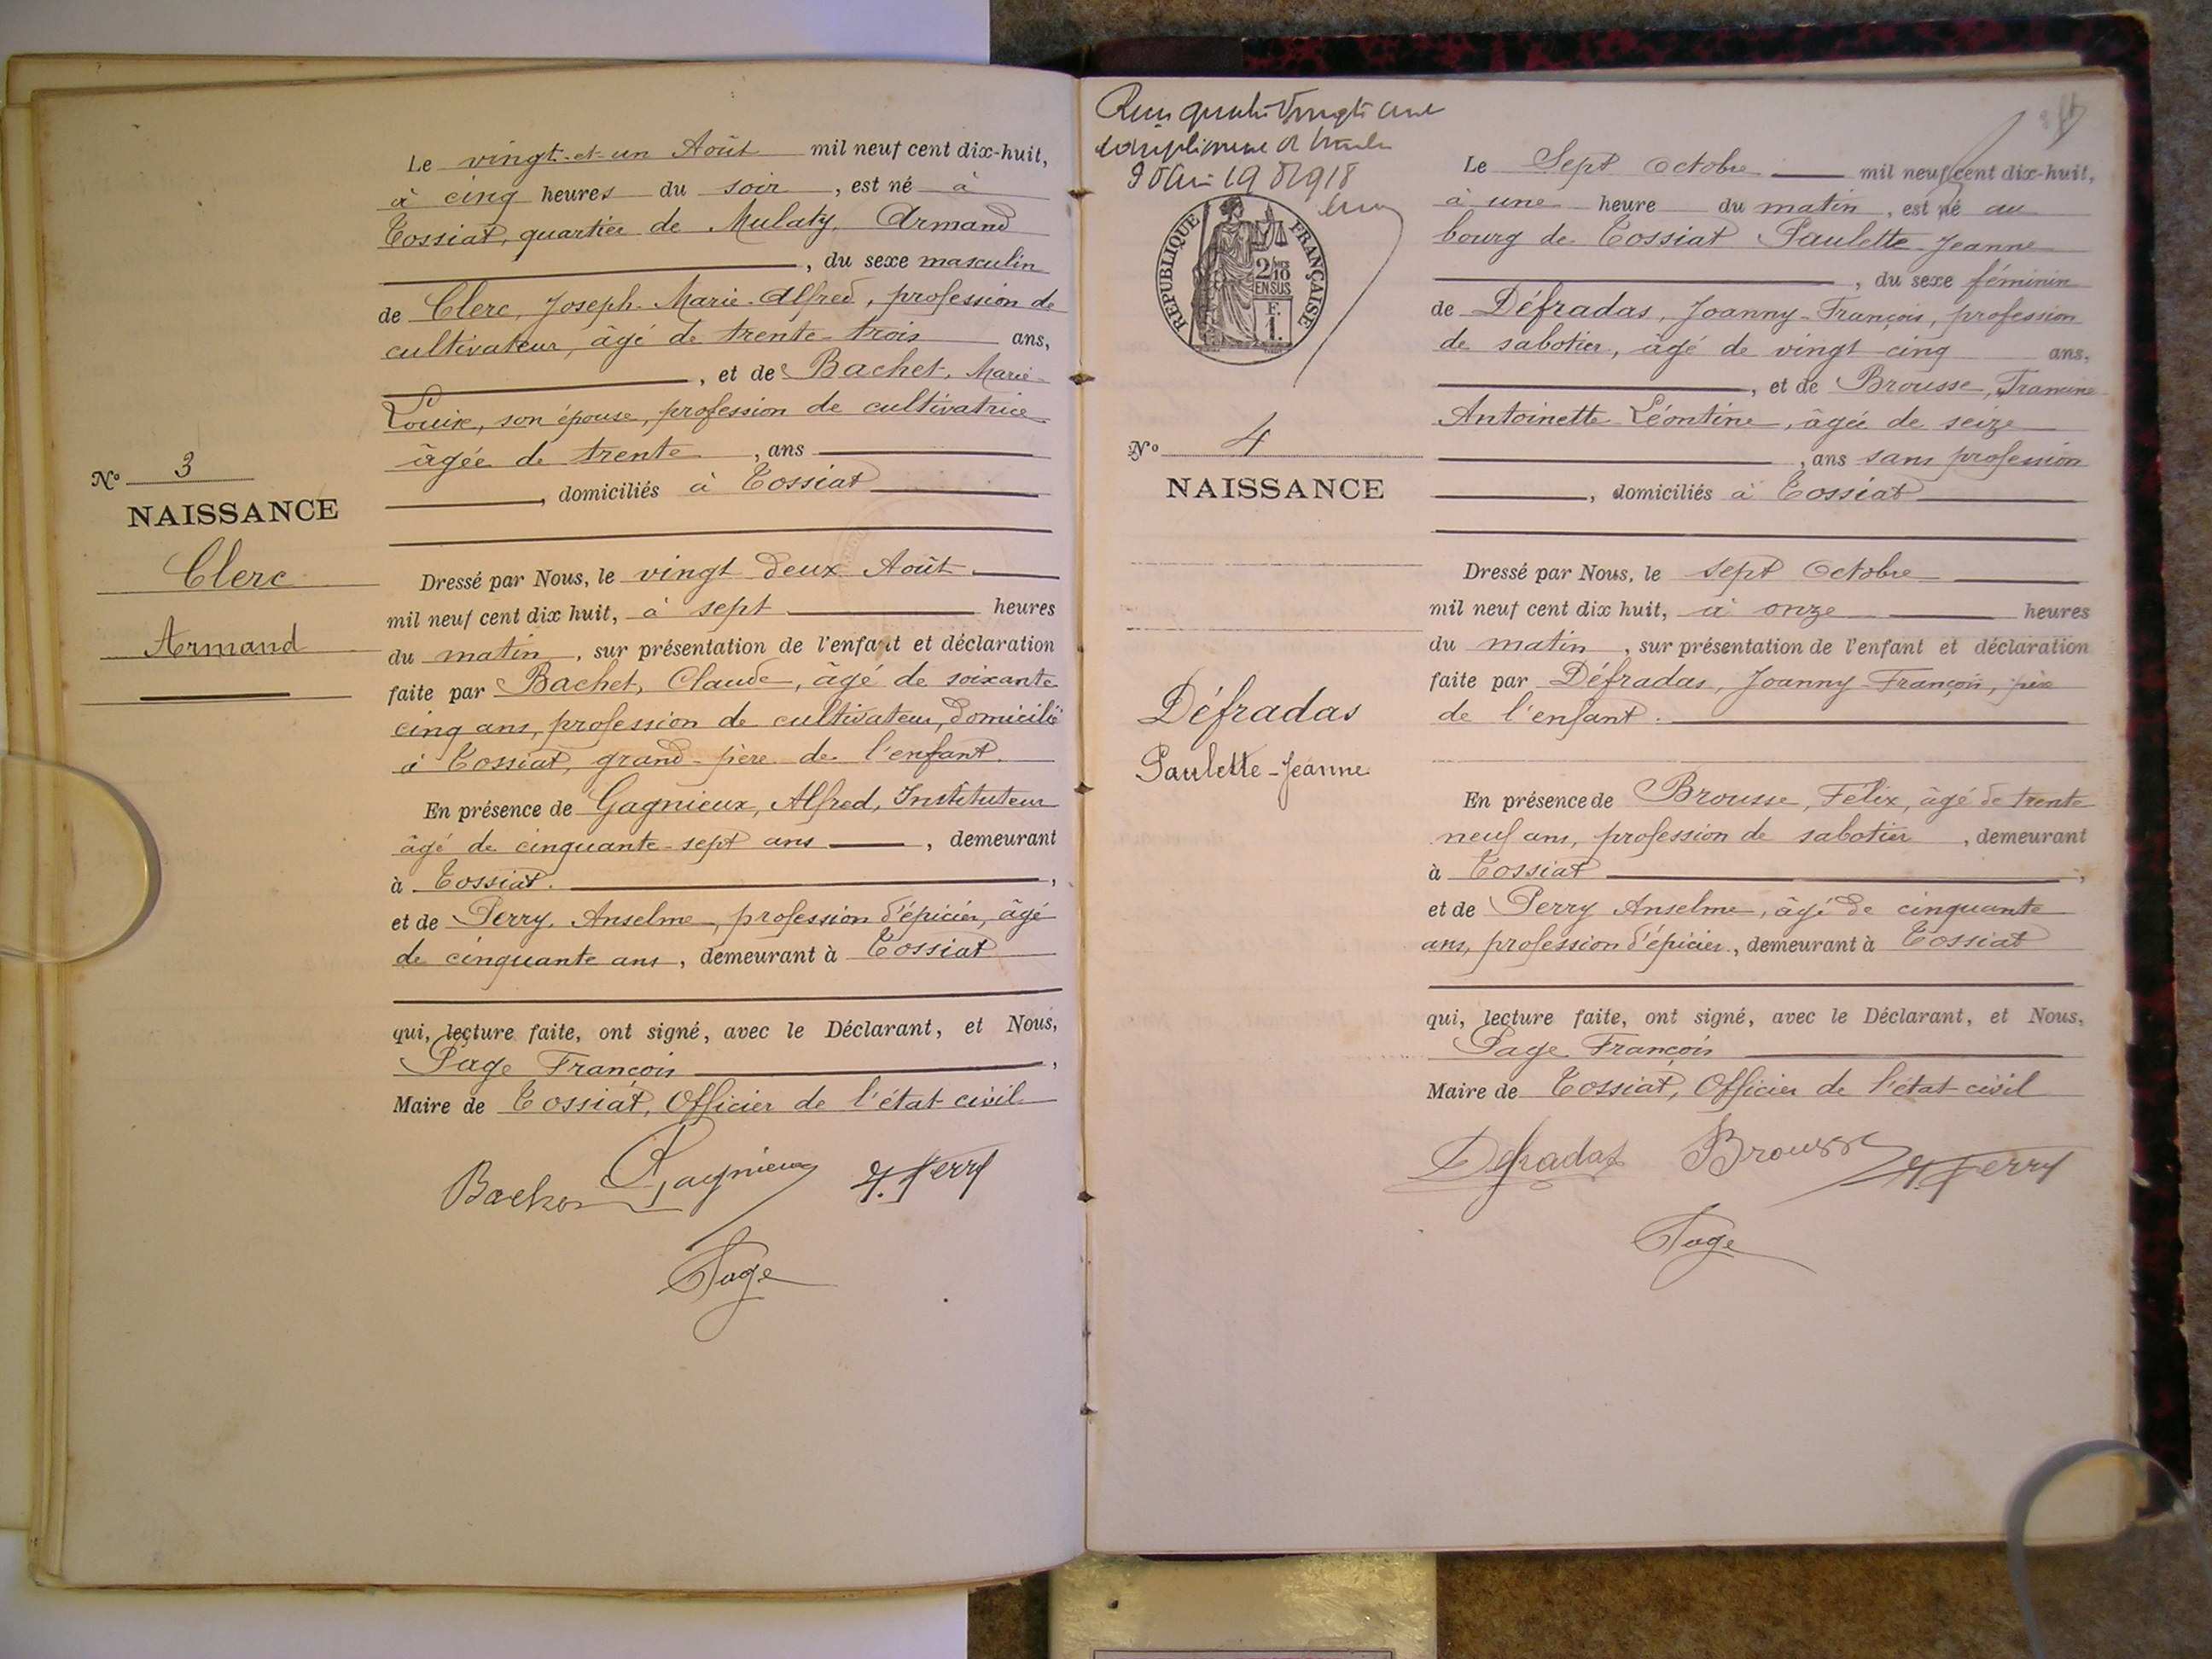 Le vingt-et-un Août mil neuf cent dix-huit,
à cinq heures du soir, est né à
Tossiat, quartier de Mulaty, Armand
, du sexe masculin
de Clerc, Joseph-Marie-Alfred, profession de
cultivateur, âgé de trente-trois ans,
, et de Bachet, Marie-
Louise, son épouse, profession de cultivatrice
âgée de trente, ans
, domiciliés à Tossiat
No 3
NAISSANCE
Clerc
Armand
Dressé par Nous, le vingt deux Août
mil neuf cent dix huit, à sept heures
du matin, sur présentation de l'enfant et déclaration
faite par Bachet, Claude, âgé de soixante
cinq ans, profession de cultivateur, domicilié
à Tossiat, grand-père de l'enfant.
En présence de Gagnieux, Alfred, Instituteur
âgé de cinquante-sept ans, demeurant
à Tossiat.,
et de Perry, Anselme, profession d'épicier, âgé
de cinquante ans, demeurant à Tossiat
qui, lecture faite, ont signé, avec le Déclarant, et Nous,
Page François,
Maire de Tossiat, Officier de l'état-civil
Bachet Gagnieux A. Perry
Page
quatre vingt
19 1918
RÉPUBLIQUE FRANÇAISE
2/10
EN SUS
F.
1.
No 4
NAISSANCE
Défradas
Paulette-Jeanne
Le Sept Octobre mil neuf cent dix-huit,
à une heure du matin, est né au
bourg de Tossiat Paulette-Jeanne
, du sexe féminin
de Défradas, Joanny-François, profession
de sabotier, âgé de vingt-cinq ans,
, et de Brousse,
Antoinette-Léontine, âgée de seize
, ans sans profession
, domiciliés à Tossiat
Dressé par Nous, le sept Octobre
mil neuf cent dix huit, à onze heures
du matin, sur présentation de l'enfant et déclaration
faite par Défradas, Joanny-François, père
de l'enfant.
En présence de Brousse, Felix, âgé de trente
neuf ans, profession de sabotier, demeurant
à Tossiat,
et de Perry Anselme, âgé de cinquante
ans, profession d'épicier, demeurant à Tossiat
qui, lecture faite, ont signé, avec le Déclarant, et Nous,
Page François
Maire de Tossiat, Officier de l'état-civil
Defradas Brousse A. Perry
Page